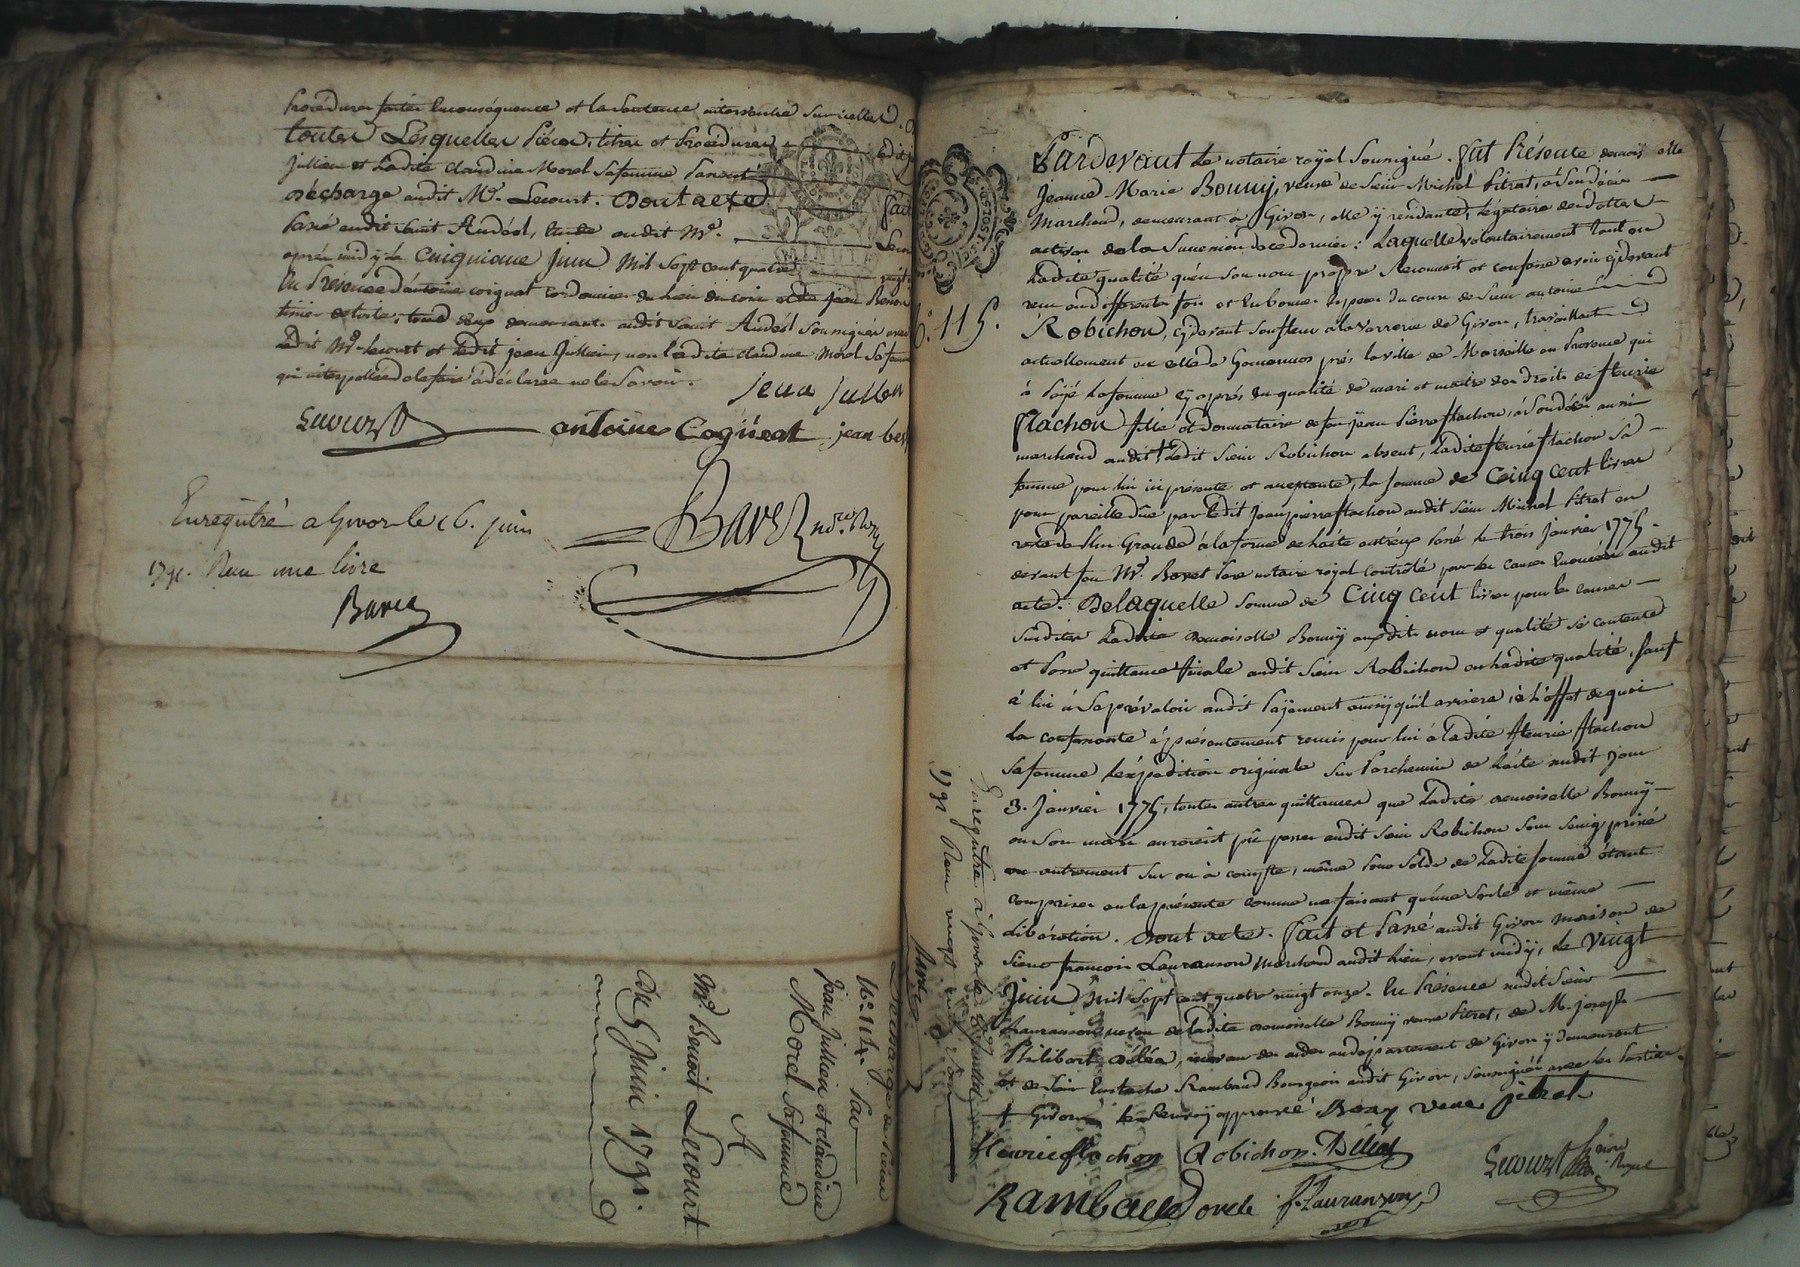 procédures faites enconséquence et la Sentence intervenüe Sur icelles.
toutes Lesquelles Piéces, titres et procédures
Jullien et Ladite Claudine Morel Safemme
décharge audit Me. Lecourt. Dont acte fait
Passé audit Saint Andéol, audit Me.
aprés midÿ le Cinquieme Juin Mil Sept cent quatre
En Présence d'antoine coignat cordonnier du lieu et de jean
tous deux demeurants audit Saint Andéol Soussignés avec
Ledit Me. Lecourt et Ledit jean Jullien, non Ladite claudine Morel Safemme
qui interpellée dele faire à déclaré ne le Savoir.
jean jullien
Lecourt antoine Cogneat jean
Baret
Enregistré a Givors le 16. juin
1791. Recu une livre
Baret
Décharge
N°. 114. Par
Jean Jullien et claudine
Morel Safemme
A
Me Benoit Lecourt
Du 5 Juin 1791.
N°. 115.
Pardevant Le notaire royal Soussigné. Fut Présente demoiselle
Jeanne Marie Bonnÿ, veuve de Sieur Michel Pitrat, à Son décés
Marchand, demeurant à Givors, elle ÿ rendante, Légataire de
action de la Succession de ce dernier : Laquelle volontairement tant en
Ladite qualité qu'en Son nom propre Reconnoit et confesse avoir cÿdevant
recu en différentes fois et en bonnes especes du cours de Sieur antoine
Robichon, cÿdevant Souffleur à la verrerie de Givors, travaillant
actuellement en celle de prés la ville de Marseille en Provence qui
à Païé Lafomme cÿ aprés En qualité de mari et maitre des droits de fleurie
flachon fille et donnataire de feu jean Pierre flachon, à Son décés aussi
marchand audit + Ledit Sieur Robichon absent, Ladite fleurie flachon Sa
femme pour lui ici présente et acceptante, la Somme de Cinq Cent livres
pour pareille düe par Ledit Jean pierre flachon audit Sieur Michel Pitrat en
reste de Plus Grande à la forme de l'acte Passé Le trois Janvier 1775.
devant feu Me. Baret Pere notaire roÿal contrôlé pour les causes Enoncées audit
acte. De laquelle Somme de Cinq Cent livres pour les causes
Susdites Ladite demoiselle Bonnÿ auxdits nom et qualité Se contente
et Passe quittance finale audit Sieur Robichon en Ladite qualité, Sauf
à lui à Se prévaloir dudit Paÿement ainsÿ qu'il avisera, à L'effet de quoi
La confessante à présentement remis pour lui à Ladite fleurie flachon
Safemme L'expédition originale Sur Parchemin de L'acte dudit jour
3. Janvier 1775, toutes autres quittances que Ladite demoiselle Bonnÿ
ou Son mari auroient pû passer audit Sieur Robichon Sous Seing privé
ou autrement Sur ou à compte, même Pour Solde de Ladite Somme étant
comprises en la présente comme ne faisant qu'une Seule et même
libération. Dont acte. Fait et Passé audit Givors maison de
Sieur francois Lauranson Marchand audit lieu, avant midÿ, Le Vingt
Juin Mil Sept cent quatre vingt onze. En Présence dudit Sieur
Lauranson neveu de Ladite demoiselle Bonnÿ veuve Pitrat, de M. joseph
Philibert Diléa, receveur des aides au département de Givors ÿ demeurant
et de Sieur Eustache Rambaud Bourgeois audit Givors, Soussignés avec les Parties.
+ Givors Le Renvoÿ approuvé Bony veuve pitrat
fleurie flachon Robichon. Diléa
Lecourt
Notaire Royal
Rambaud oncle f. Lauranson
Enregistré à Givors le
1791. Recu
Baret